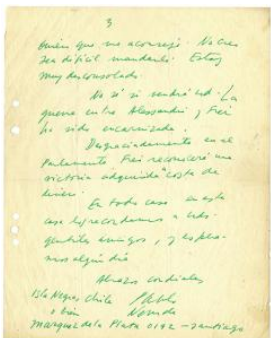 3
quien que me aconsejó. No creo
sea difícil mandarlo. Estoy
muy desconsolado.
No sé si vendrá Ud. La
guerra entre Alessandri y Frei
ha sido encarnizada.
Desgraciadamente en el
Parlamento Frei reconocerá una
victoria adquirida a costa de
dinero.
En todo caso en esta
casa los recordamos a Uds.
gentiles amigos, y espera-
mos algún día
Abrazos cordiales
Isla Negra, Chile Pablo
o bien Neruda
Marquez de la Plata 0192 - Santiago